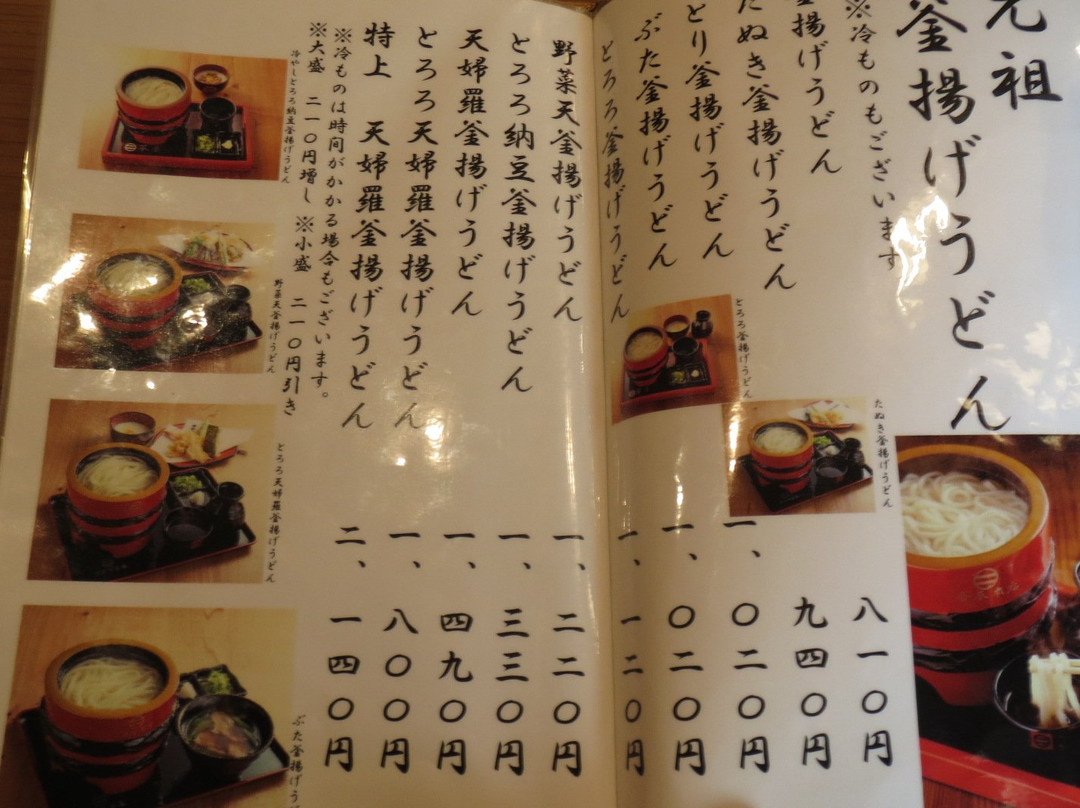 元祖
釜揚げうどん
※冷ものもございます
釜揚げうどん 八一〇円
たぬき釜揚げうどん 九四〇円
とり釜揚げうどん 一、〇二〇円
ぶた釜揚げうどん 一、〇二〇円
とろろ釜揚げうどん 一、一二〇円
たぬき釜揚げうどん
とろろ釜揚げうどん
野菜天釜揚げうどん 一、二二〇円
とろろ納豆釜揚げうどん 一、三三〇円
天婦羅釜揚げうどん 一、四九〇円
とろろ天婦羅釜揚げうどん 一、八〇〇円
特上 天婦羅釜揚げうどん 二、一四〇円
※冷ものは時間がかかる場合もございます。
※大盛 二一〇円増し ※小盛 二一〇円引き
冷やしとろろ納豆釜揚げうどん
野菜天釜揚げうどん
とろろ天婦羅釜揚げうどん
ぶた釜揚げう